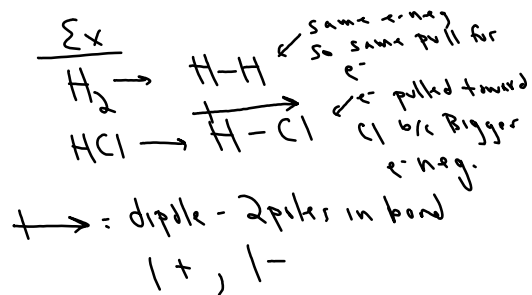 Ex
H2 → H-H ↙ same e-neg
so same pull for
e-
HCl → H-Cl ↙ e- pulled toward
Cl b/c Bigger
e-neg.
+→ = dipole - 2 poles in bond
1+, 1-